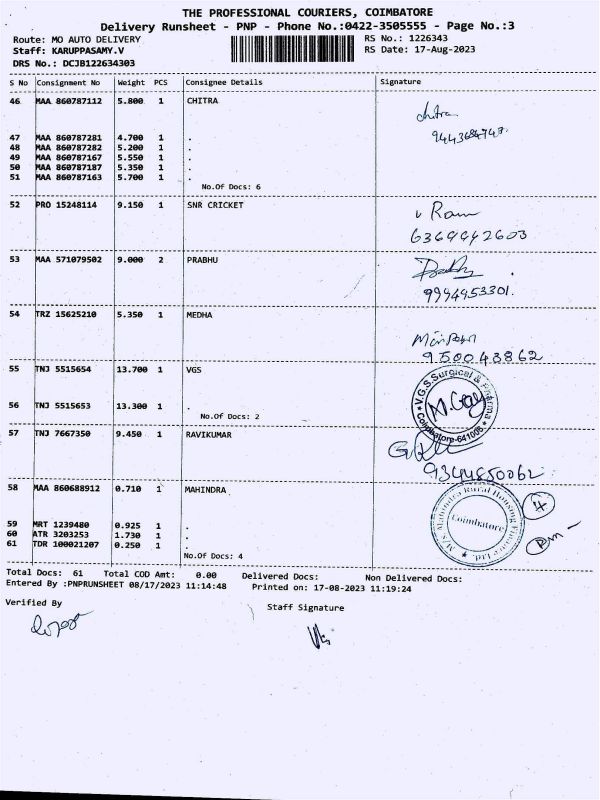 THE PROFESSIONAL COURIERS, COIMBATORE
Delivery Runsheet - PNP - Phone No.:0422-3505555 - Page No.:3
Route: MO AUTO DELIVERY RS No.: 1226343
Staff: KARUPPASAMY.V RS Date: 17-Aug-2023
DRS No.: DCJB122634303
S No Consignment No Weight PCS Consignee Details Signature
46 MAA 860787112 5.800 1 CHITRA
chitra
47 MAA 860787281 4.700 1 .
48 MAA 860787282 5.200 1 .
49 MAA 860787167 5.550 1 .
50 MAA 860787187 5.350 1 .
51 MAA 860787163 5.700 1 .
No.Of Docs: 6
52 PRO 15248114 9.150 1 SNR CRICKET
v Ram
6369442603
53 MAA 571079502 9.000 2 PRABHU
9994953301.
54 TRZ 15625210 5.350 1 MEDHA
950043862
55 TNJ 5515654 13.700 1 VGS
V.G.S.Surgical & Pharma
Coimbatore-641006
56 TNJ 5515653 13.300 1 .
No.Of Docs: 2
57 TNJ 7667350 9.450 1 RAVIKUMAR
9344850062
58 MAA 860688912 0.710 1 MAHINDRA
M/s. Mahindra Rural Housing Finance Ltd.
Coimbatore
4
59 MRT 1239480 0.925 1 .
60 ATR 3203253 1.730 1 .
61 TDR 100021207 0.250 1 .
No.Of Docs: 4
Total Docs: 61 Total COD Amt: 0.00 Delivered Docs: Non Delivered Docs:
Entered By :PNPRUNSHEET 08/17/2023 11:14:48 Printed on: 17-08-2023 11:19:24
Verified By Staff Signature